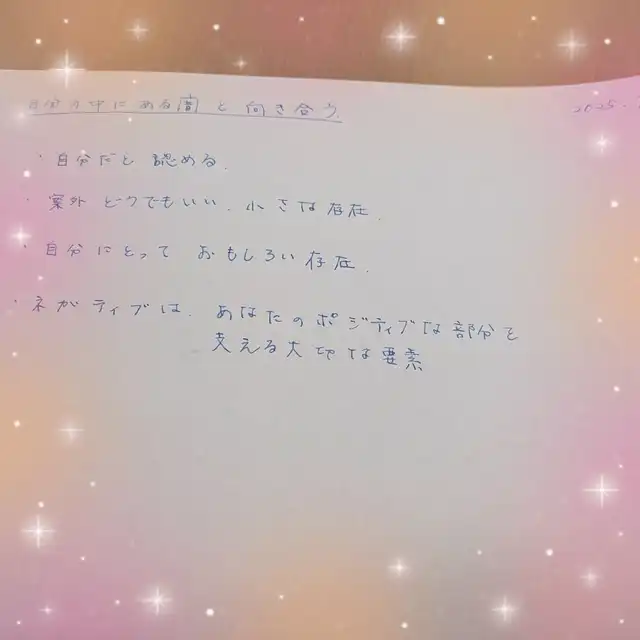 自分の中にある闇と向き合う.
2025.
・自分だと認める.
・案外どうでもいい.小さな存在.
・自分にとっておもしろい存在.
・ネガティブは.あなたのポジティブな部分を
支える大切な要素